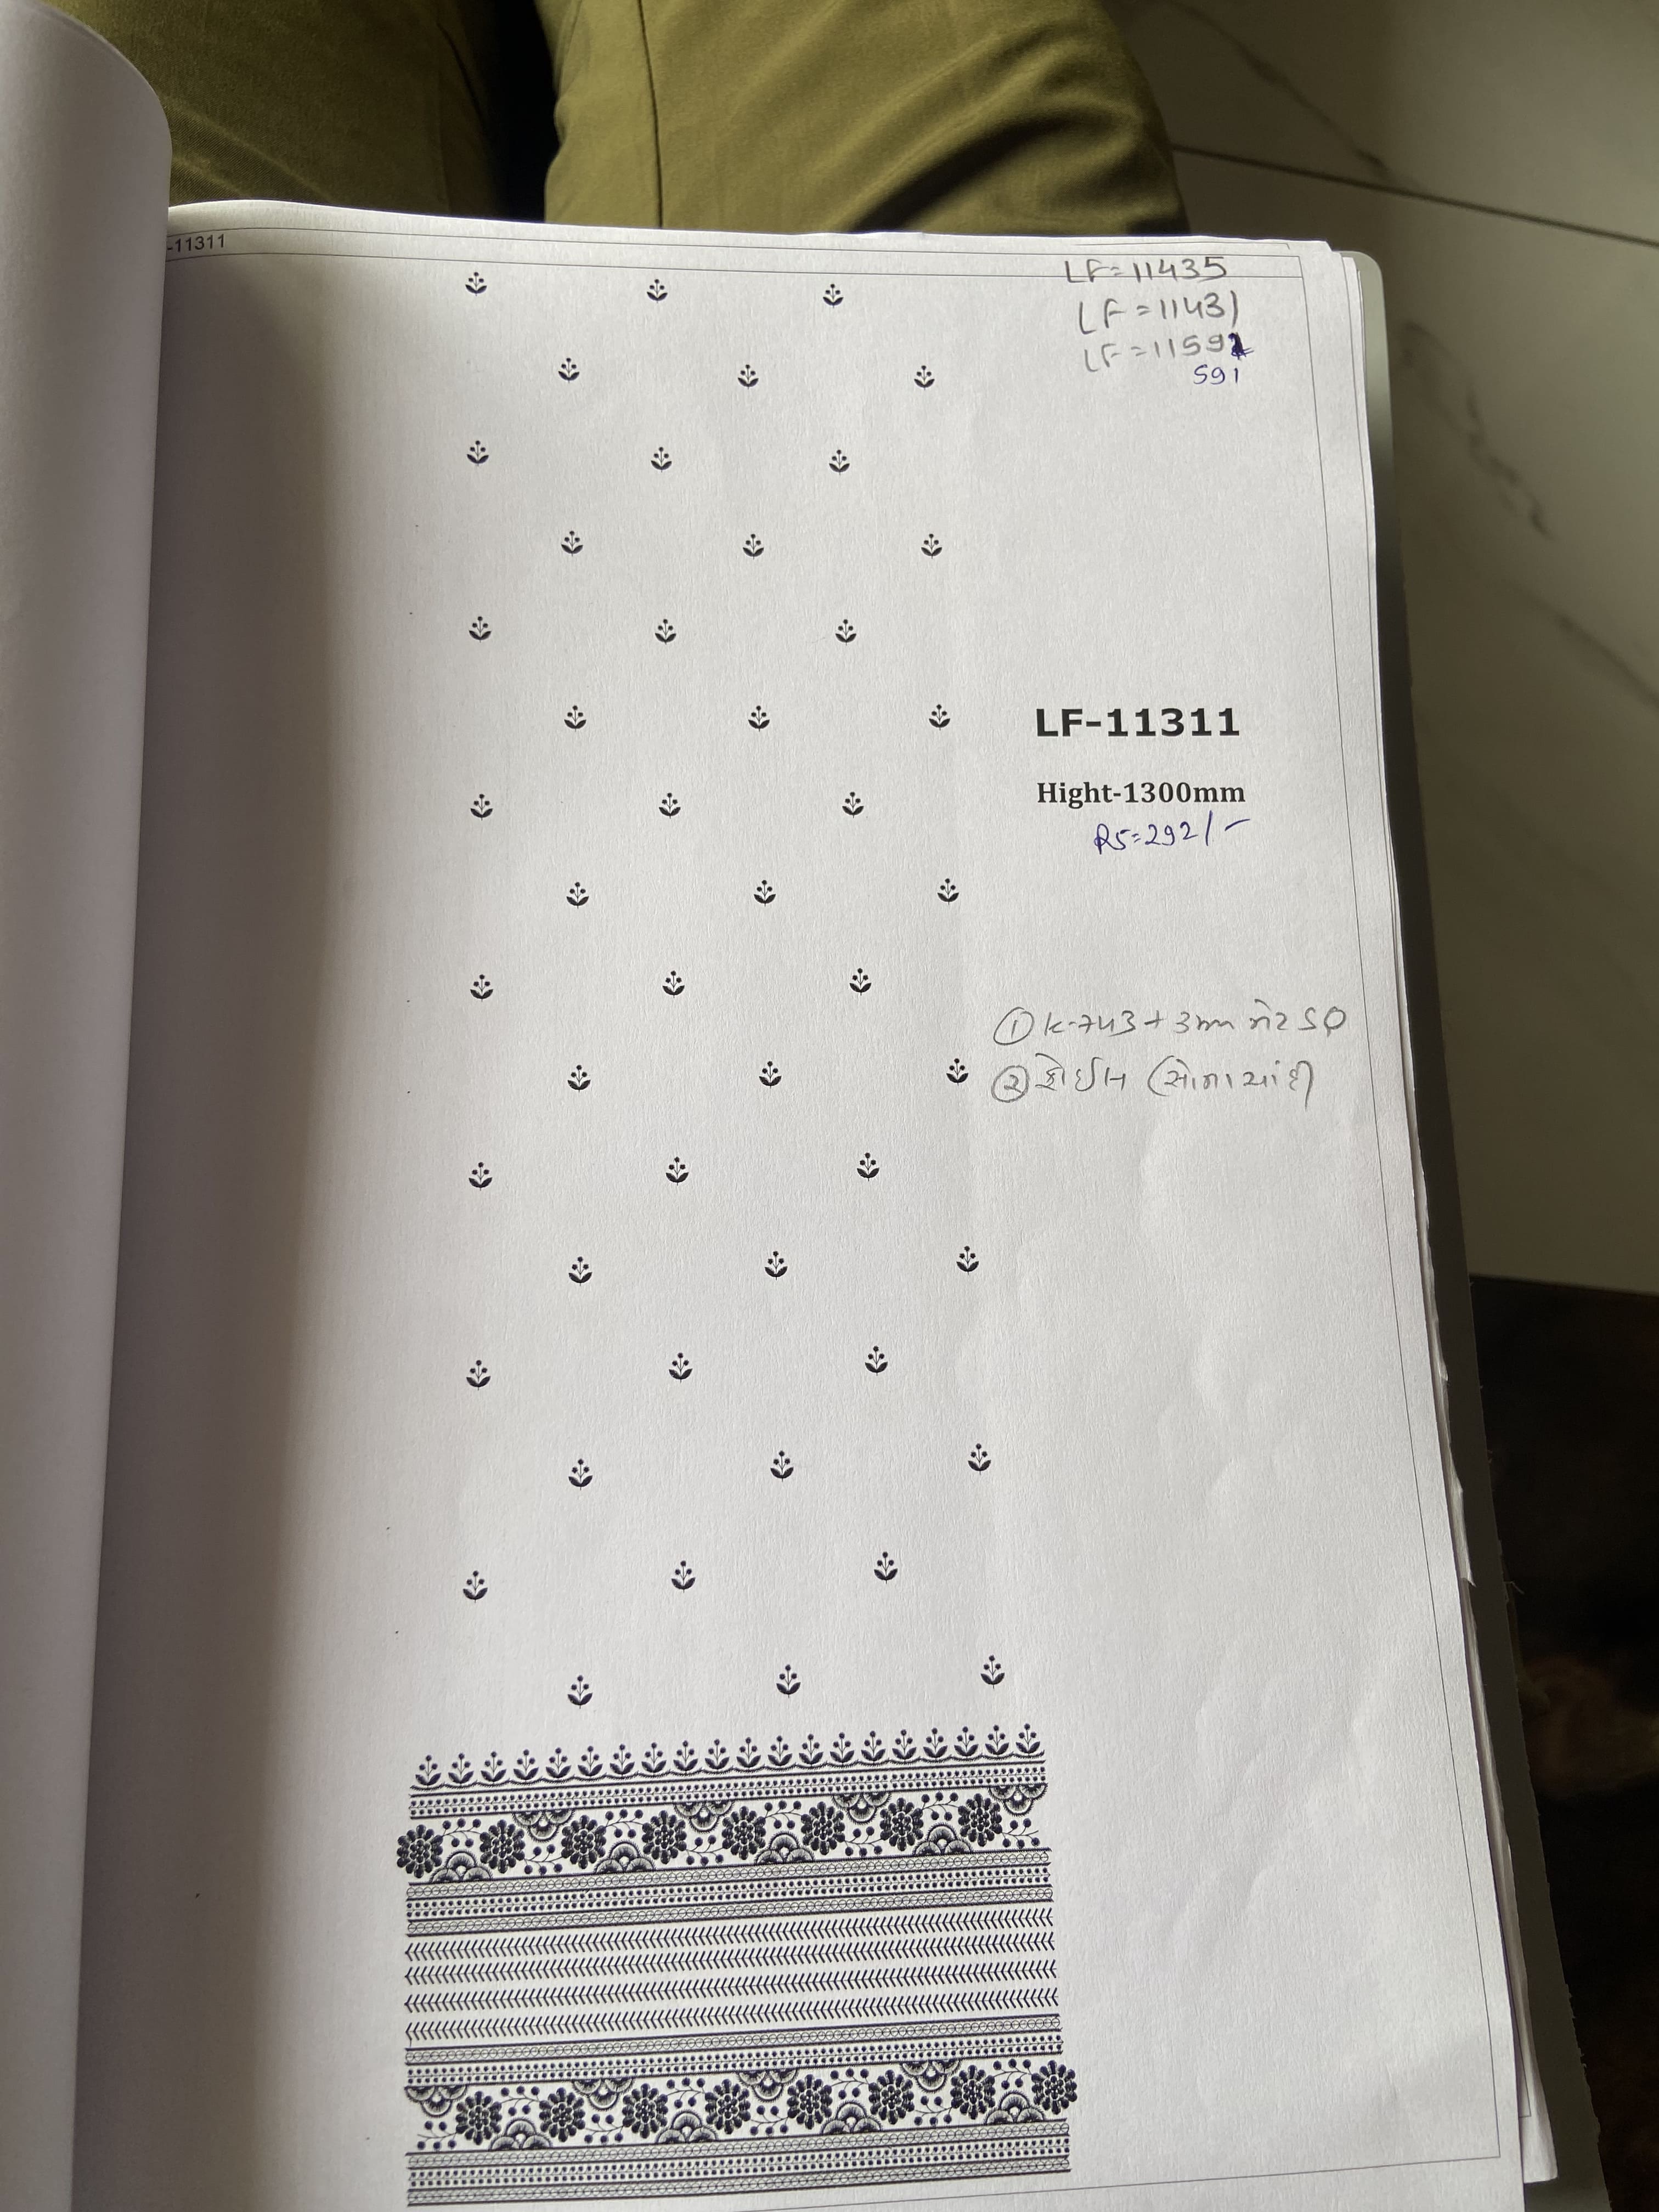 -11311
LF=11435
LF=11431
LF=1159
591
LF-11311
Hight-1300mm
RS=292/-
① K-743+3mm
② ફોઈલ (સોના ચાંદી)